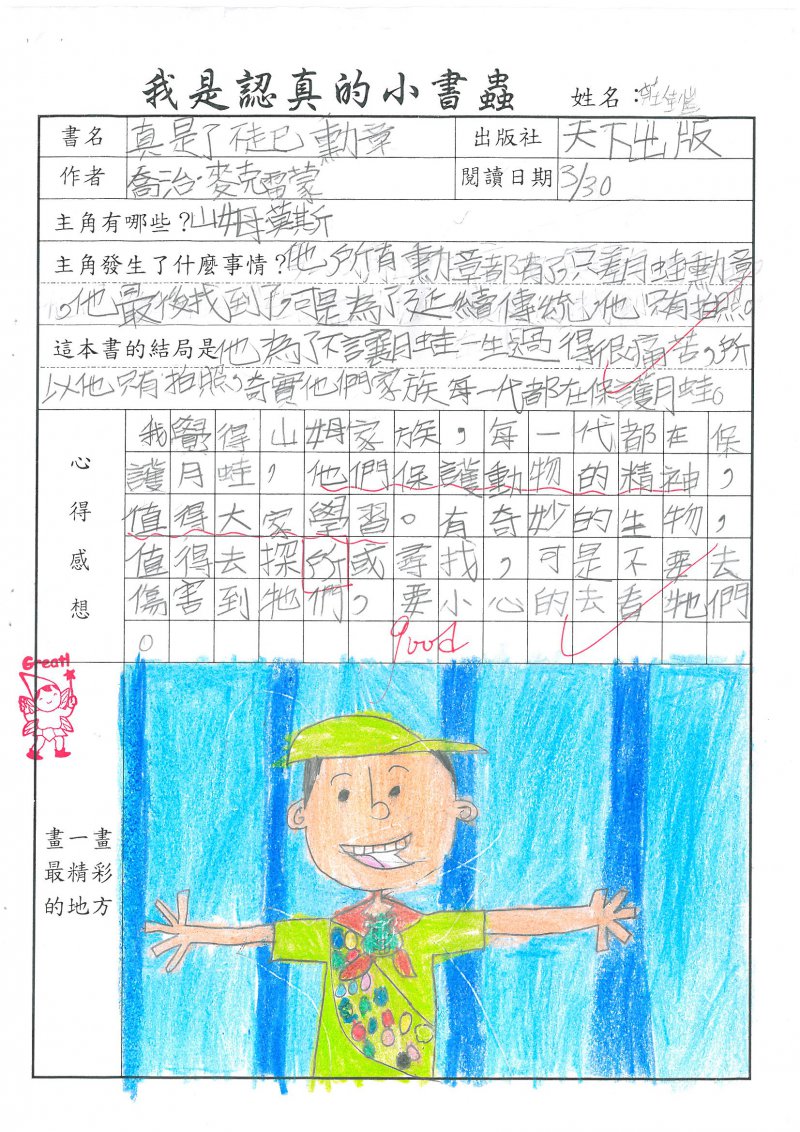 我是認真的小書蟲 姓名：莊
書名 真是了徒巳勳章 出版社 天下出版
作者 喬治・麥克雷蒙 閱讀日期 3/30
主角有哪些？山姆・莫斯
主角發生了什麼事情？他所有勳章都有了只差月蛙勳章
，他最後找到了，可是為了延續傳統，他只有拍照。
這本書的結局是他為了不讓月蛙一生過得很痛苦，所
以他只有拍照，奇實他們家族每一代都在保護月蛙。
心得感想
我覺得山姆家族，每一代都在保
護月蛙，他們保護動物的精神，
值得大家學習。有奇妙的生物，
值得去探所或尋找，可是不要去
傷害到牠們，要小心的去看牠們
。
good
Great!
畫一畫
最精彩
的地方